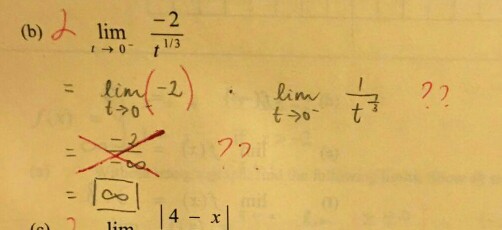 (b) 2 lim t → 0⁻ -2 / t^1/3
= lim t→0⁻ (-2) · lim t→0⁻ 1 / t^1/3 ??
= -2 / -∞ ??
= ∞
lim |4 - x|